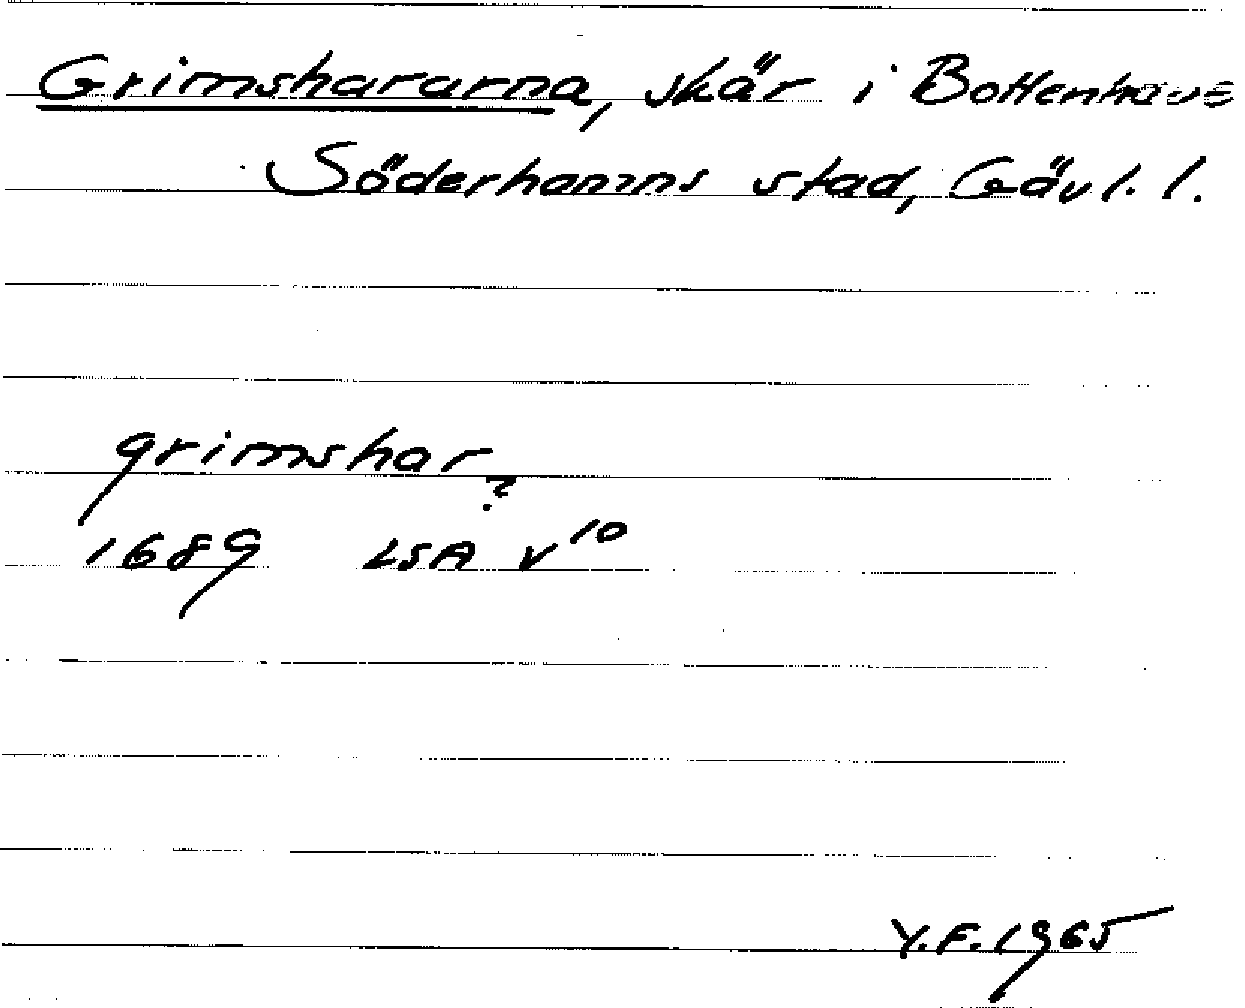 Grimshararna, skär i Bottenhavs
Söderhamns stad, Gävl. l.
grimshar
?
1689 LSA V 10
Y.F. 1965